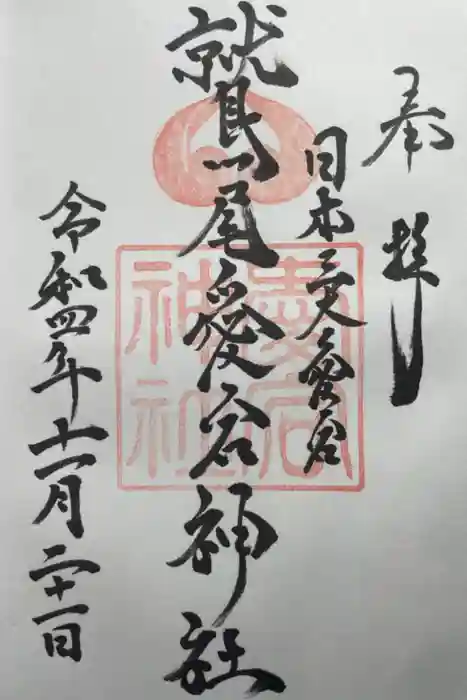 奉拝
日本三大愛宕
鷲尾愛宕神社
愛宕神社
令和四年十一月二十一日